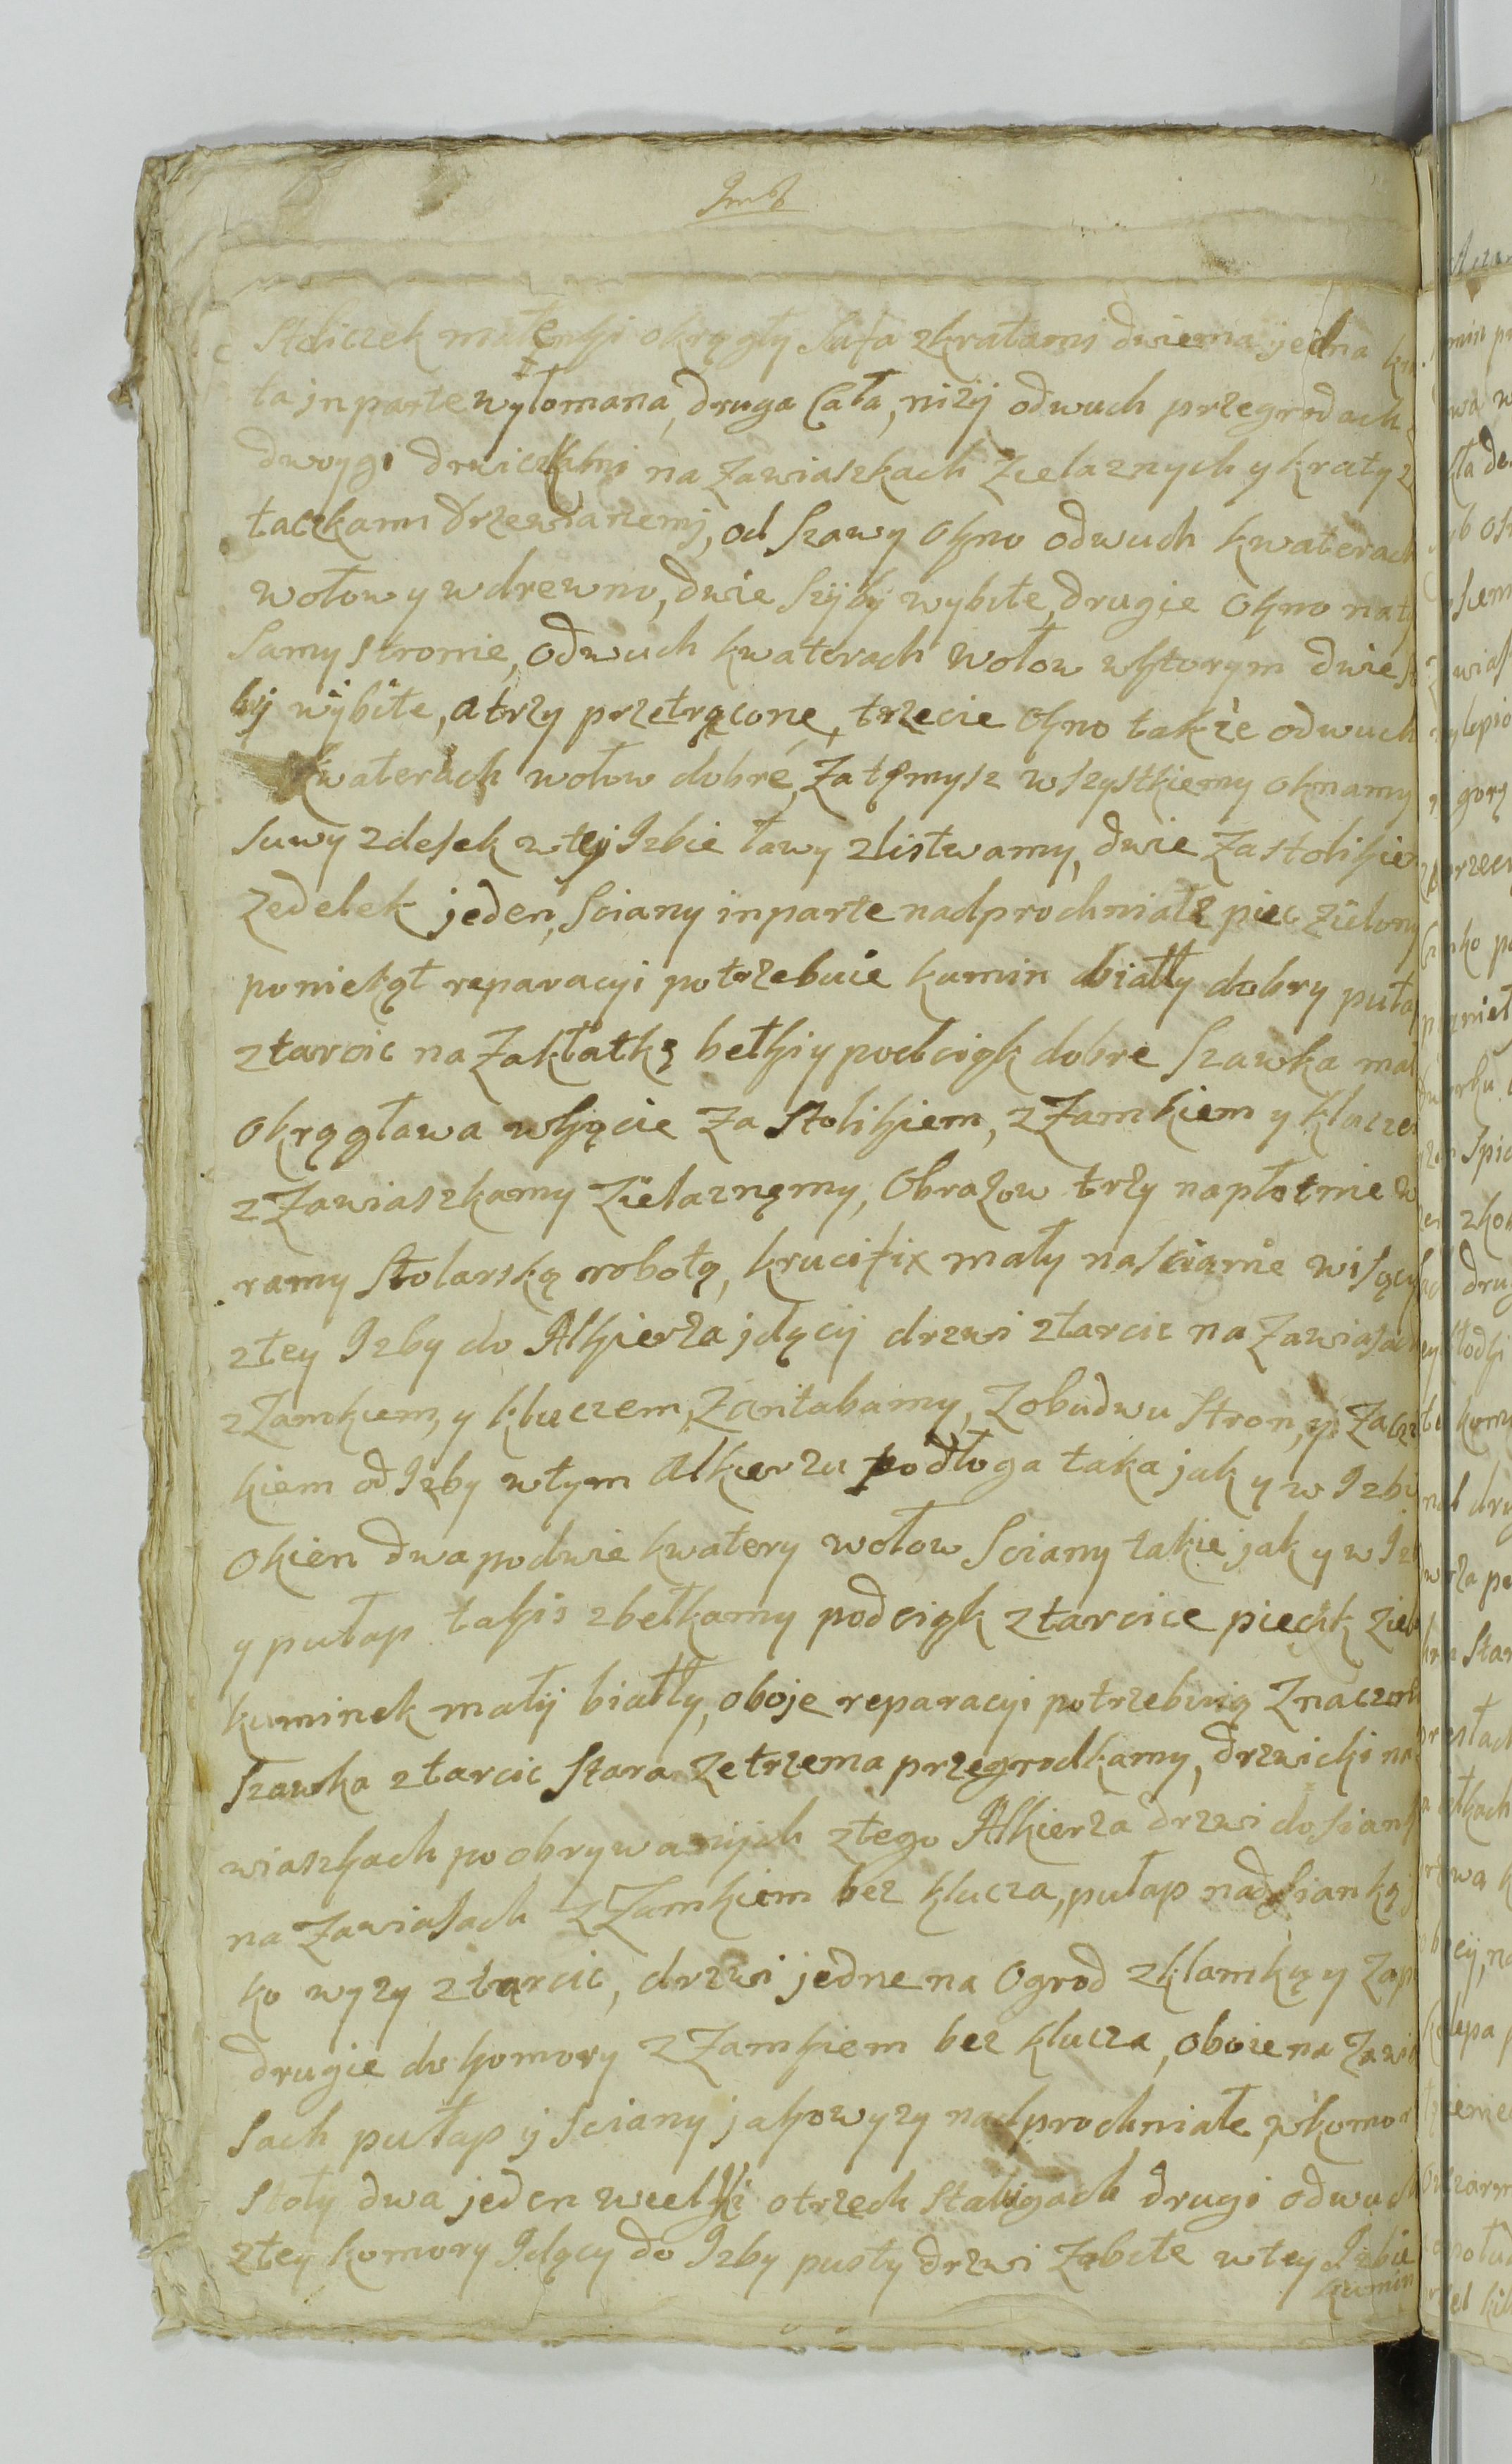 Stoliczek malenki okrągły Safa zkratami dwiema jedna
ta jn parte wyłomana, druga Cała, niżÿ odwuch przegrodach
dwoygi drwiczkami na Zawiaszkach Zielaznych y kraty z
taczkami drzewianemi, od Szawy okno odwuch kwaterach
wołow y wdrewno, dwie Szÿbÿ wybite, drugie okno na ty
Samy stronie, odwuch kwaterach wołow wktorym dwie
bÿ wÿbite, atrzy przetrącone, trzecie okno także odwuch
kwaterach wołow dobre, Zatemysz wszystkiemy oknamy
Suwy zdesek wteÿ Izbie ławy zlistwamy, dwie Zastolikiem
Zedelek jeden, Sciany inparte nadprochniałe piec Zielony
poniekąt reparacyi potrzebuie kumin biały dobry puła
ztarcic naZakłatkę belki y podciągk dobre Szawka mał
Okrągława wkącie Za Stolikiem, zZamkiem y kluczem
zZawiaszkamy Zielaznęmy, Obrazow trzy napłotnie w
ramy Stolarską robotą, krucifix mały naścianie wisący
ztey Izby do Alkierza jdącÿ drzwi ztarcic na Zawiasach
zZamkiem, y kluczem, Zantabamy, Zobudwu Stron, y Zacz
kiem od Izby wtym Alkierzu podłoga taka jak y w Izbi
Okien dwa podwie kwatery wołow Sciany takie jak y w Iz
y pułap takis zbelkamy podciągk ztarcice piecÿk ziel
kuminek małÿ biały, oboje reparacyi potrzebuią Znaczny
Szawka ztarcic Stara Zetrzema przegrodkamy, drzwicki na
wiaszkach poobrywanÿch ztego Alkierza drzwi dosianki
na Zawiasach zZamkiem bez klucza, pułap nadsianką
ko wyzy ztarcic, drzwi jedne na Ogrod zklamką y Zap
drugie do komory zZamkiem bez klucza, oboie na Zawia
sach pułap ÿ Sciany jakowyzy nadprochniałe, wkomor
Stoły dwa jeden wielki otrzech Stalugach drugi odwuch
ztey komory Idący do Izby pusty drzwi Zabite wtey Izbie
kumin